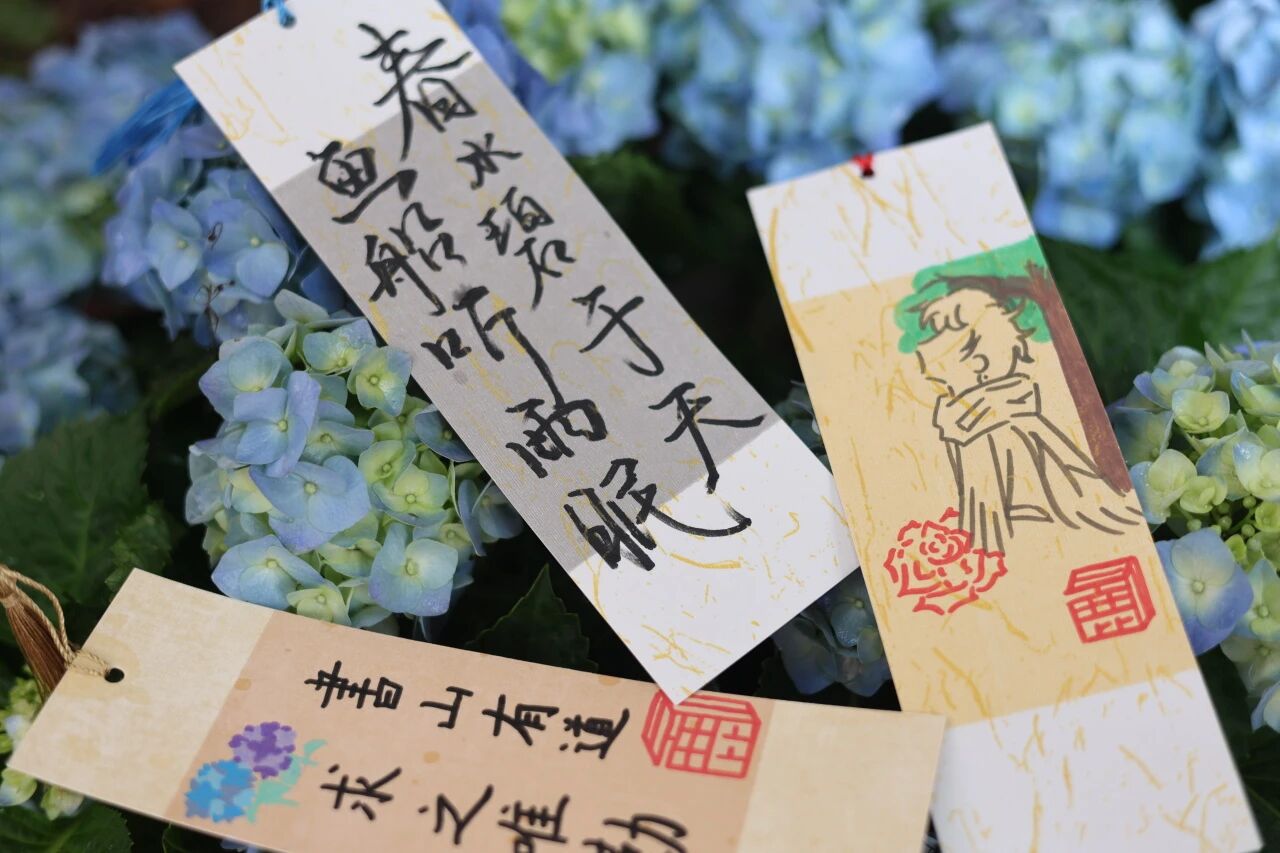 春水碧于天
画船听雨眠
書山有道
求之唯勤